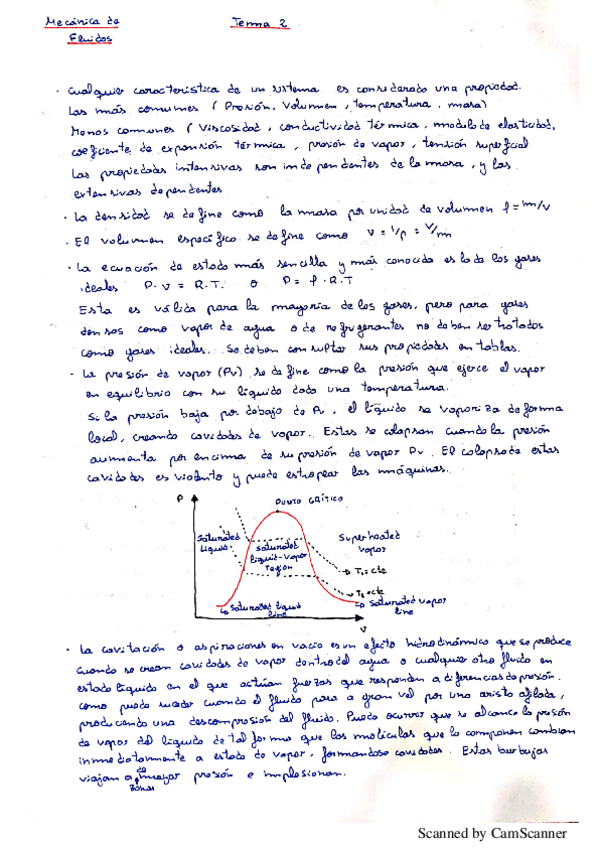 Mecánica de Tema 2
Fluidos
· Cualquier característica de un sistema es considerado una propiedad.
Las más comunes (Presión, Volumen, temperatura, masa)
Menos comunes (Viscosidad, conductividad térmica, modulo de elasticidad,
coeficiente de expansión térmica, presión de vapor, tensión superficial
Las propiedades intensivas son independentes de la masa, y las
extensivas dependentes
· La densidad se define como la masa por unidad de volumen ρ = m/v
· El volumen específico se define como v = 1/ρ = V/m
· La ecuación de estado más sencilla y más conocida es la de los gases
ideales P·v = R.T. o P = ρ·R.T
Esta es válida para la mayoría de los gases, pero para gases
densos como vapor de agua o de refrigerantes no deben ser tratados
como gases ideales. Se deben consultar sus propiedades en tablas.
· La presión de vapor (Pv) se define como la presión que ejerce el vapor
en equilibrio con su líquido dada una temperatura.
Si la presión baja por debajo de Pv, el líquido se vaporiza de forma
local, creando cavidades de vapor. Estas se colapsan cuando la presión
aumenta por encima de su presión de vapor Pv. El colapso de estas
cavidades es violento y puede estropear las máquinas.
P
PUNTO CRÍTICO
Saturated
liquid
Saturated
liquid-vapor
region
Superheated
vapor
T₁ = cte
T₂ = cte
Saturated liquid
line
Saturated vapor
line
V
· La cavitación o aspiraciones en vacío es un efecto hidrodinámico que se produce
cuando se crean cavidades de vapor dentro del agua o cualquier otro fluido en
estado líquido en el que actúan fuerzas que responden a diferencias de presión.
como puede suceder cuando el fluido pasa a gran vel por una arista afilada,
produciendo una descompresión del fluido. Puede ocurrir que se alcance la presión
de vapor del líquido de tal forma que las moléculas que lo componen cambian
inmediatamente a estado de vapor, formandose cavidades. Estas burbujas
viajan a zonas de mayor presión e implosionan.
Scanned by CamScanner